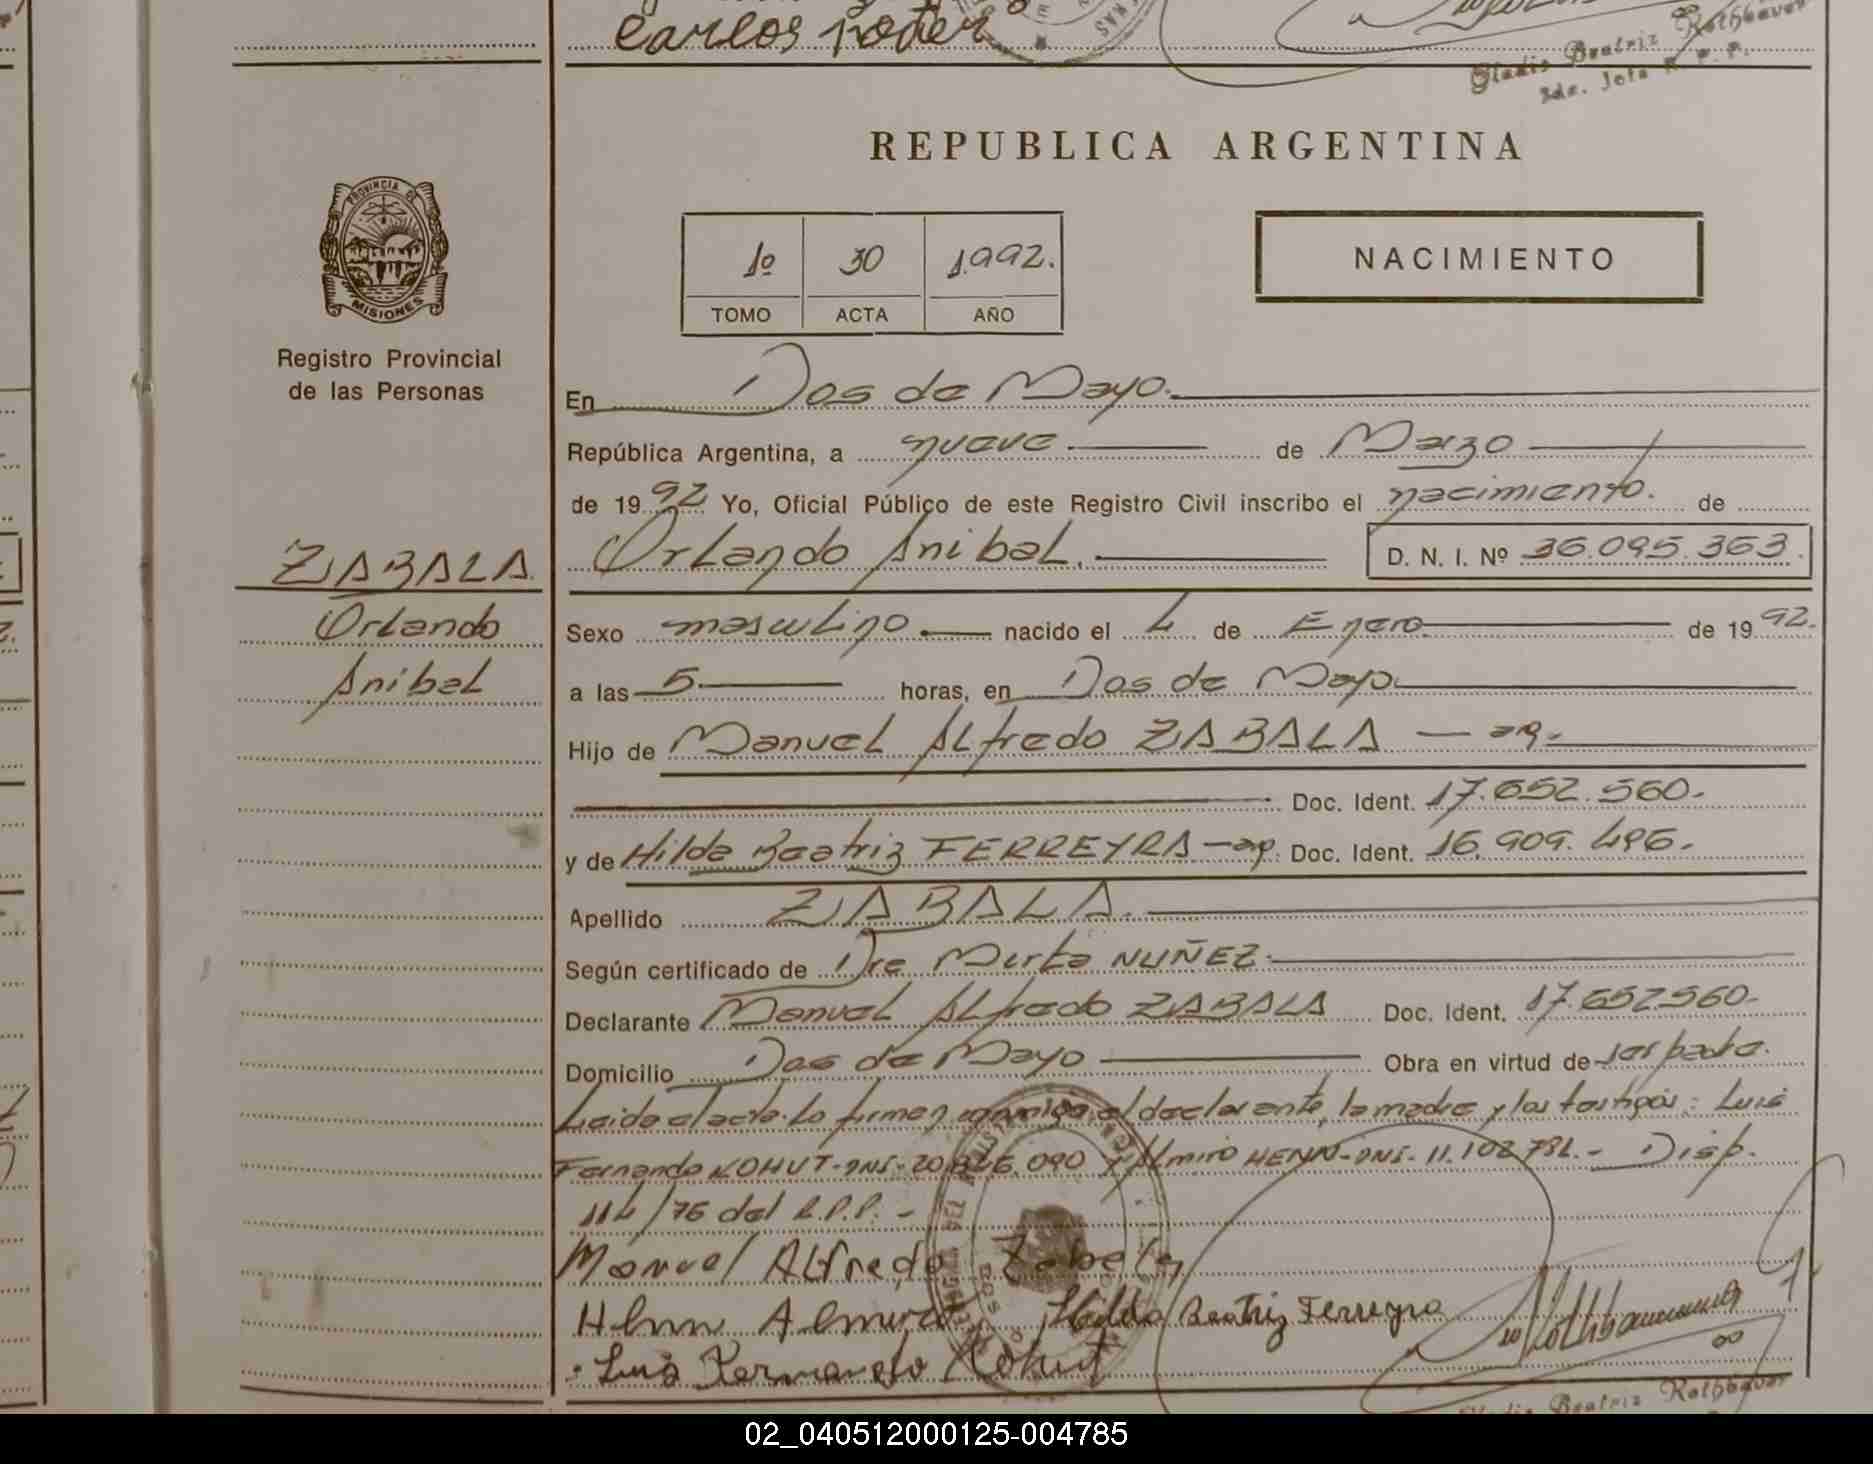 Carlos
Gladis Beatriz Rothbauer
REPUBLICA ARGENTINA
PROVINCIA DE
MISIONES
Registro Provincial
de las Personas
1º 30 1992.
TOMO ACTA AÑO
NACIMIENTO
En Dos de Mayo.
República Argentina, a nueve de Marzo
de 1992 Yo, Oficial Público de este Registro Civil inscribo el nacimiento. de
ZABALA
Orlando Anibal. D. N. I. Nº 36.095.363.
Orlando
Sexo masculino nacido el 4 de Enero de 1992.
Anibal
a las 5 horas, en Dos de Mayo
Hijo de Manuel Alfredo ZABALA — ar.
Doc. Ident. 17.652.560.
y de Hilda Beatriz FERREYRA — ar. Doc. Ident. 16.909.496.
Apellido ZABALA.
Según certificado de Dra Mirta NUÑEZ.
Declarante Manuel Alfredo ZABALA Doc. Ident. 17.652.560.
Domicilio Dos de Mayo Obra en virtud de ser padre.
Leida el acta. Lo firman conmigo, el declarante, la madre y los testigos: Luis
Fernando KOHUT-DNI- y Almiro HENN-DNI- Disp.
114/76 del R.P.P. -
Manuel Alfredo Zabala
Henn Almiro Hilda Beatriz Ferreyra
Luis Fernando Kohut
Gladis Beatriz Rothbauer
02_040512000125-004785